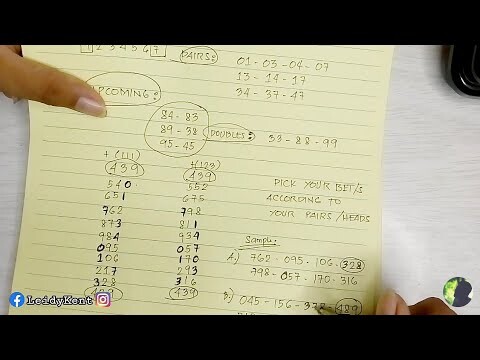 1 2 3 4 5 6 7
PAIRS: 01 - 03 - 04 - 07
13 - 14 - 17
34 - 37 - 47
PCOMING:
84 - 83
89 - 38 DOUBLES: 33 - 88 - 99
95 - 45
+(111) +(123)
439 439
540 552
651 675
762 798
873 811
984 934
095 057
106 170
217 293
328 316
439 439
PICK YOUR BET/S
ACCORDING TO
YOUR PAIRS/HEADS
Sample:
A.) 762 - 095 - 106 - 328
798 - 057 - 170 - 316
B.) 045 - 156 - 378 - 489
LeidyKent